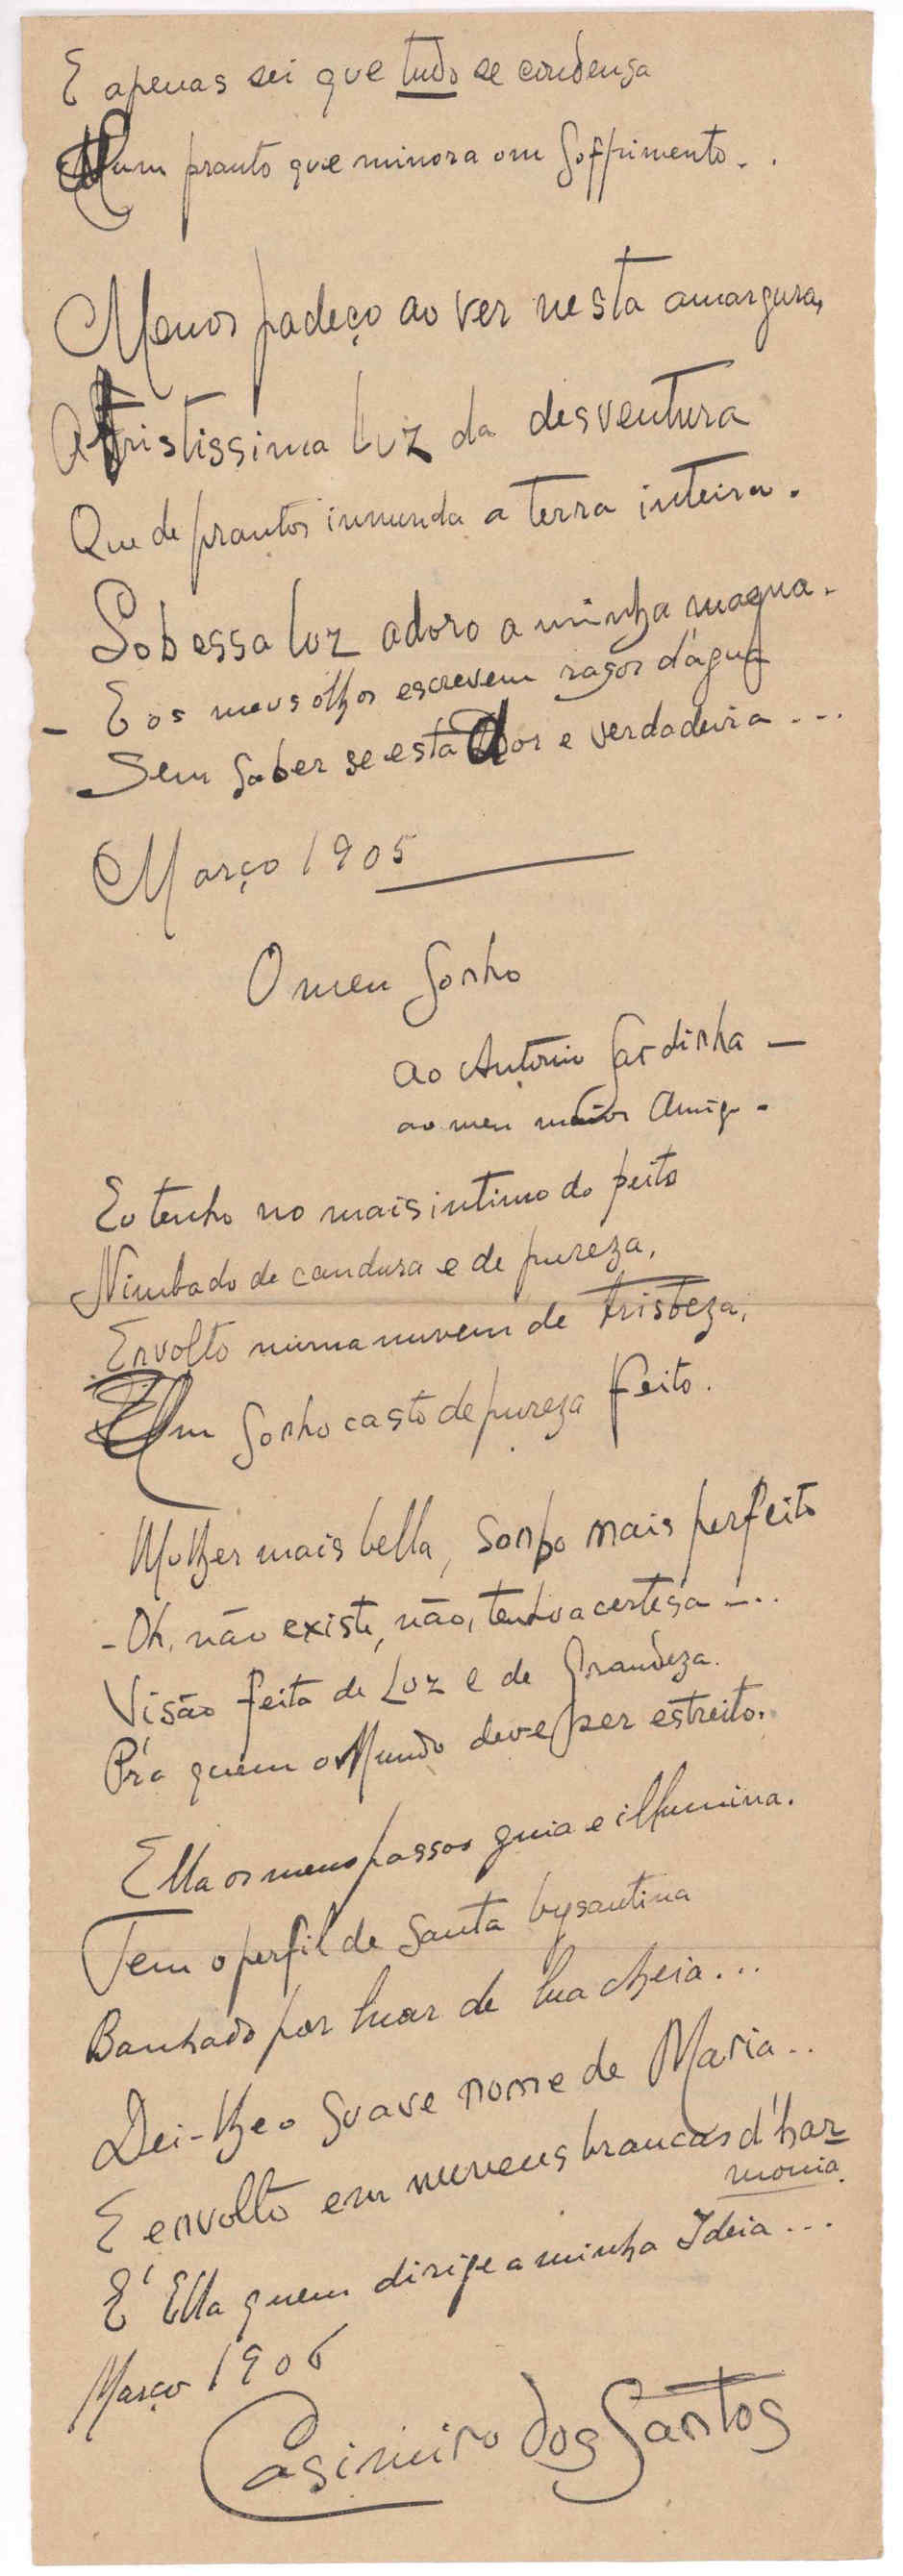 E apenas sei que tudo se condensa
Num pranto que minora om soffrimento - .
Menos padeço ao ver nesta amargura,
A tristissima luz da desventura
Que de prantos innunda a terra inteira.
Sob essa luz adoro a minha magua.
- E os meus olhos escrevem rasos d'agua
Sem saber se esta dor e verdadeira ...
Março 1905
O meu Sonho
Ao Antonio Sardinha -
ao meu maior Amigo -
Eu tenho no mais intimo do peito
Nimbado de candura e de pureza,
Envolto numa nuvem de tristeza,
Um Sonho casto de pureza feito.
Mulher mais bella, sonho mais perfeito
- Oh, não existe, não, tenho a certesa - ..
Visão feita de Luz e de Grandeza.
Pr'a quem o Mundo deve ser estreito.
Ella os meus passos guia e illumina.
Tem o perfil de Santa bysantina
Banhado por luar de lua cheia...
Dei-lhe o suave nome de Maria..
E envolto em nuvens brancas d'har-
monia.
E' Ella quem dirige a minha Ideia...
Março 1906
Casimiro dos Santos